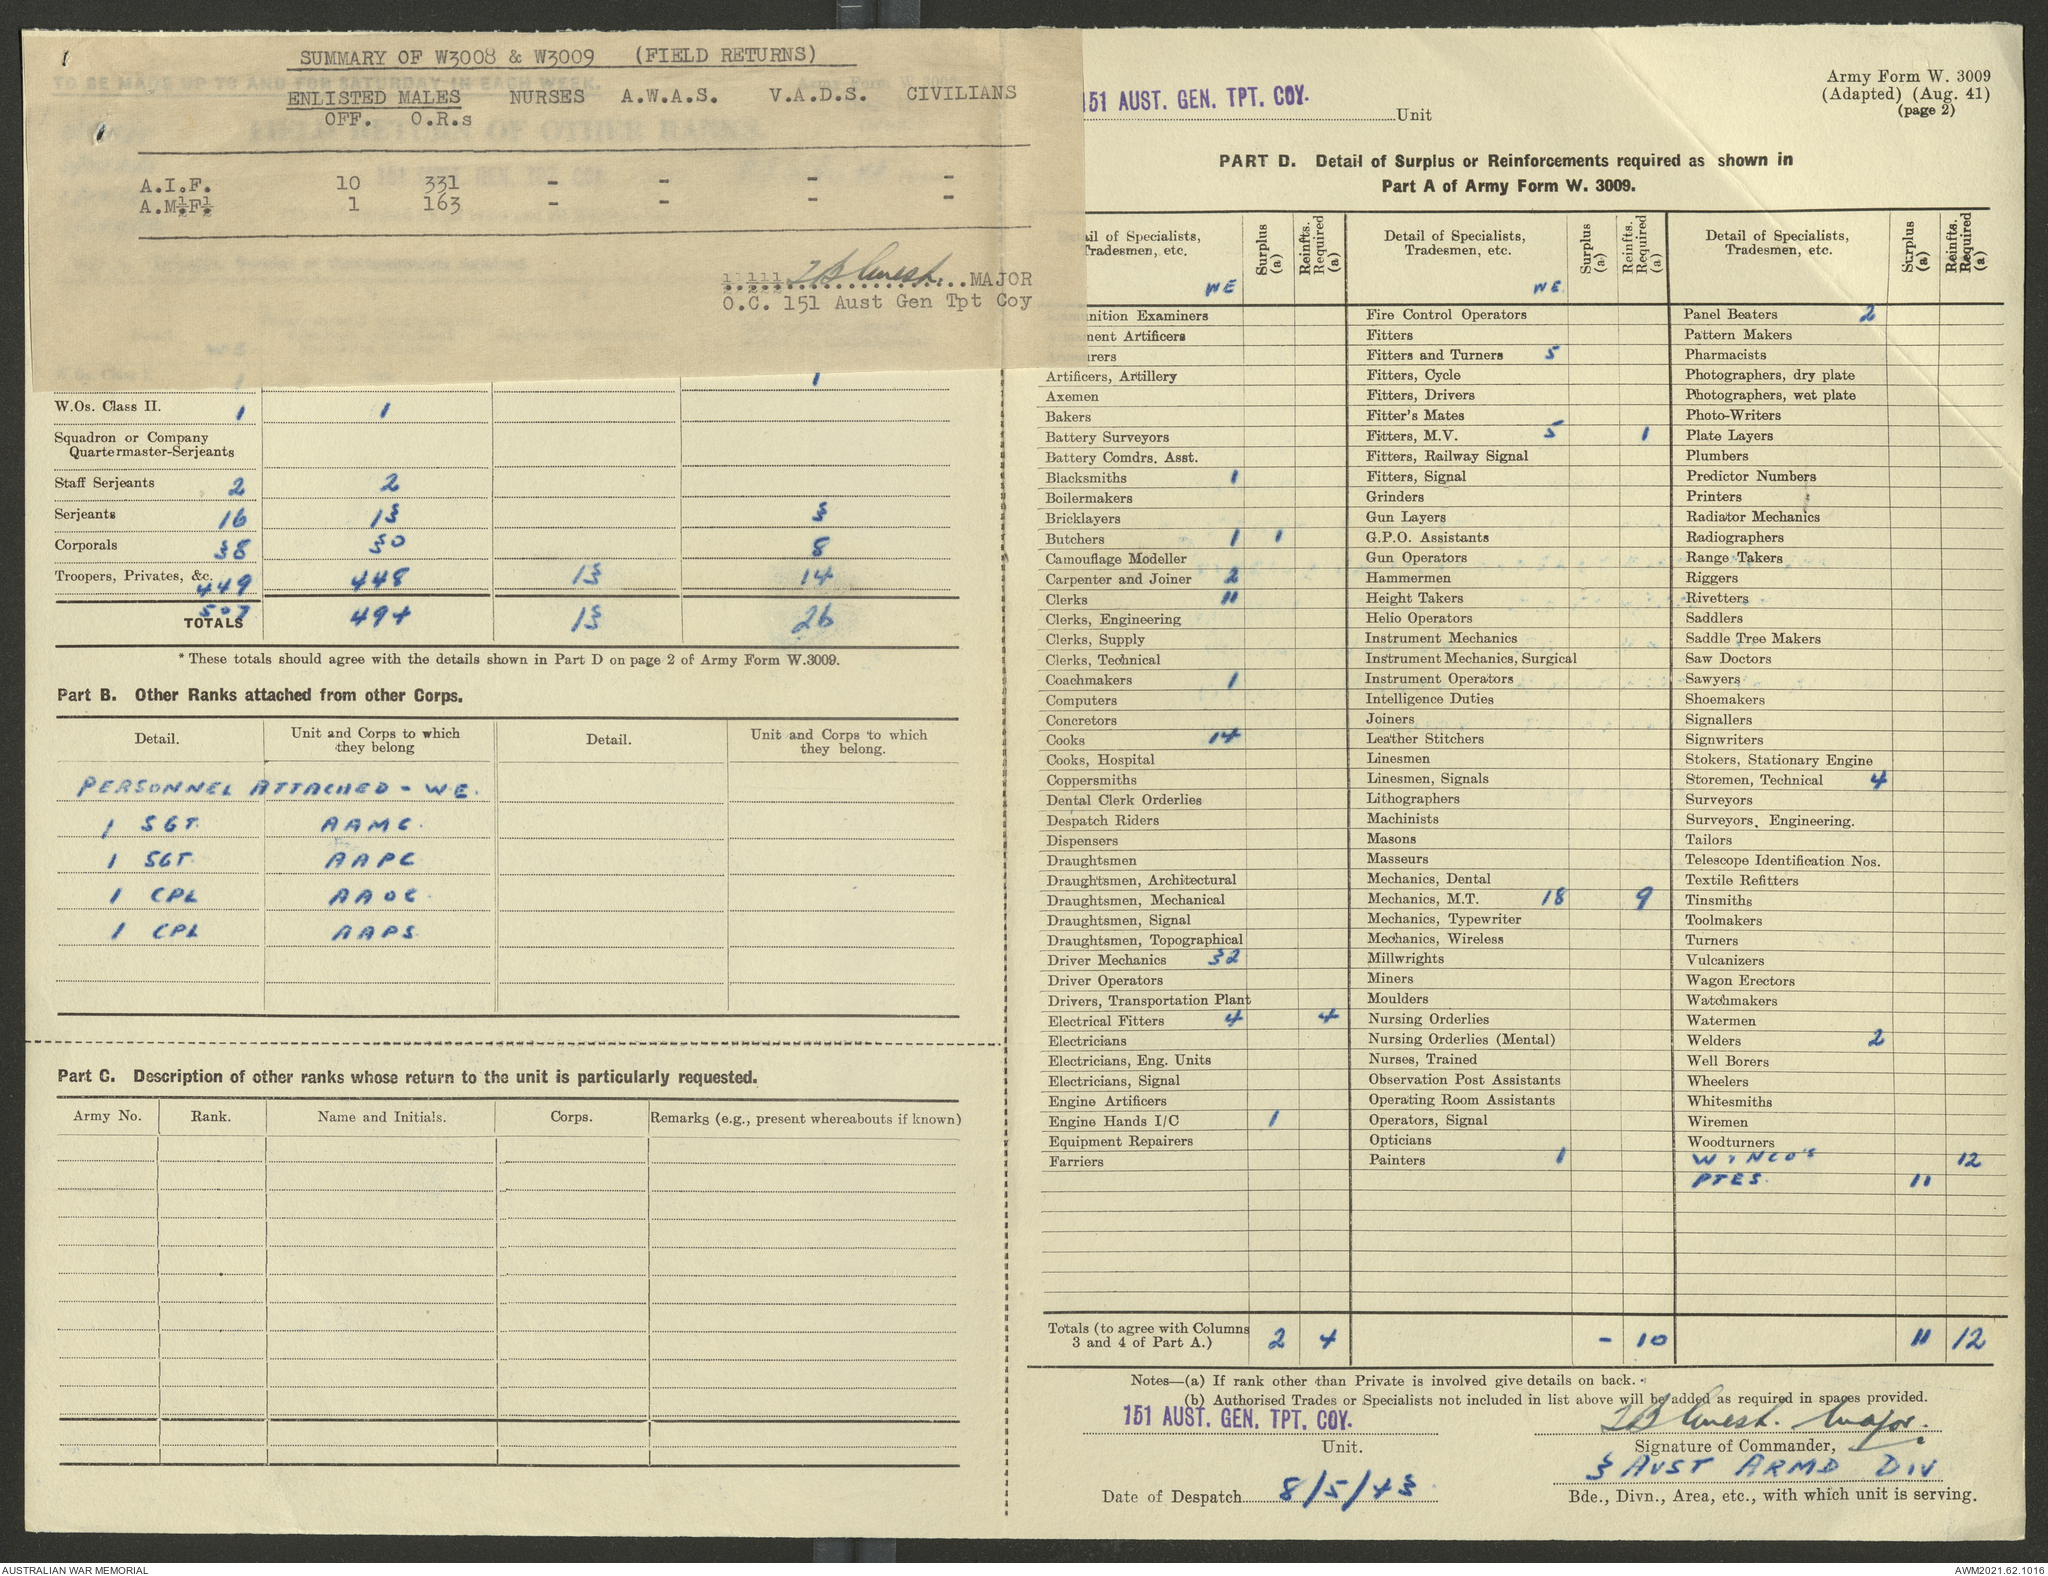 SUMMARY OF W3008 & W3009 (FIELD RETURNS)
ENLISTED MALES NURSES A.W.A.S. V.A.D.S. CIVILIANS
OFF. O.R.s
A.I.F. 10 331 - - - -
A.M.F. 1 163 - - - -
MAJOR
O.C. 151 Aust Gen Tpt Coy
1
W.Os. Class II. 1 1
Squadron or Company
Quartermaster-Serjeants
Staff Serjeants 2 2
Serjeants 16 13 3
Corporals 38 30 8
Troopers, Privates, &c. 449 448 13 14
TOTALS 507 494 13 26
* These totals should agree with the details shown in Part D on page 2 of Army Form W.3009.
Part B. Other Ranks attached from other Corps.
Detail. Unit and Corps to which they belong Detail. Unit and Corps to which they belong.
PERSONNEL ATTACHED - W.E.
1 SGT. AAMC.
1 SGT. AAPC
1 CPL AAOC.
1 CPL AAPS.
Part C. Description of other ranks whose return to the unit is particularly requested.
Army No. Rank. Name and Initials. Corps. Remarks (e.g., present whereabouts if known)
Army Form W. 3009
(Adapted) (Aug. 41)
(page 2)
151 AUST. GEN. TPT. COY.
Unit
PART D. Detail of Surplus or Reinforcements required as shown in
Part A of Army Form W. 3009.
Detail of Specialists, Tradesmen, etc. WE Surplus (a) Reinfts. Required (a)
Ammunition Examiners
Armament Artificers
Armourers
Artificers, Artillery
Axemen
Bakers
Battery Surveyors
Battery Comdrs. Asst.
Blacksmiths 1
Boilermakers
Bricklayers
Butchers 1 1
Camouflage Modeller
Carpenter and Joiner 2
Clerks 11
Clerks, Engineering
Clerks, Supply
Clerks, Technical
Coachmakers 1
Computers
Concretors
Cooks 14
Cooks, Hospital
Coppersmiths
Dental Clerk Orderlies
Despatch Riders
Dispensers
Draughtsmen
Draughtsmen, Architectural
Draughtsmen, Mechanical
Draughtsmen, Signal
Draughtsmen, Topographical
Driver Mechanics 32
Driver Operators
Drivers, Transportation Plant
Electrical Fitters 4 4
Electricians
Electricians, Eng. Units
Electricians, Signal
Engine Artificers
Engine Hands I/C 1
Equipment Repairers
Farriers
Detail of Specialists, Tradesmen, etc. WE. Surplus (a) Reinfts. Required (a)
Fire Control Operators
Fitters
Fitters and Turners 5
Fitters, Cycle
Fitters, Drivers
Fitter's Mates
Fitters, M.V. 5 1
Fitters, Railway Signal
Fitters, Signal
Grinders
Gun Layers
G.P.O. Assistants
Gun Operators
Hammermen
Height Takers
Helio Operators
Instrument Mechanics
Instrument Mechanics, Surgical
Instrument Operators
Intelligence Duties
Joiners
Leather Stitchers
Linesmen
Linesmen, Signals
Lithographers
Machinists
Masons
Masseurs
Mechanics, Dental
Mechanics, M.T. 18 9
Mechanics, Typewriter
Mechanics, Wireless
Millwrights
Miners
Moulders
Nursing Orderlies
Nursing Orderlies (Mental)
Nurses, Trained
Observation Post Assistants
Operating Room Assistants
Operators, Signal
Opticians
Painters 1
Detail of Specialists, Tradesmen, etc. Surplus (a) Reinfts. Required (a)
Panel Beaters 2
Pattern Makers
Pharmacists
Photographers, dry plate
Photographers, wet plate
Photo-Writers
Plate Layers
Plumbers
Predictor Numbers
Printers
Radiator Mechanics
Radiographers
Range Takers
Riggers
Rivetters
Saddlers
Saddle Tree Makers
Saw Doctors
Sawyers
Shoemakers
Signallers
Signwriters
Stokers, Stationary Engine
Storemen, Technical 4
Surveyors
Surveyors, Engineering.
Tailors
Telescope Identification Nos.
Textile Refitters
Tinsmiths
Toolmakers
Turners
Vulcanizers
Wagon Erectors
Watchmakers
Watermen
Welders 2
Well Borers
Wheelers
Whitesmiths
Wiremen
Woodturners
W & NCO'S 12
PTES. 11
Totals (to agree with Columns 3 and 4 of Part A.) 2 4 - 10 11 12
Notes—(a) If rank other than Private is involved give details on back.
(b) Authorised Trades or Specialists not included in list above will be added as required in spaces provided.
151 AUST. GEN. TPT. COY.
Unit.
Major.
Signature of Commander,
3 AUST ARMD DIV
Date of Despatch 8/5/43
Bde., Divn., Area, etc., with which unit is serving.
AUSTRALIAN WAR MEMORIAL
AWM2021.62.1016